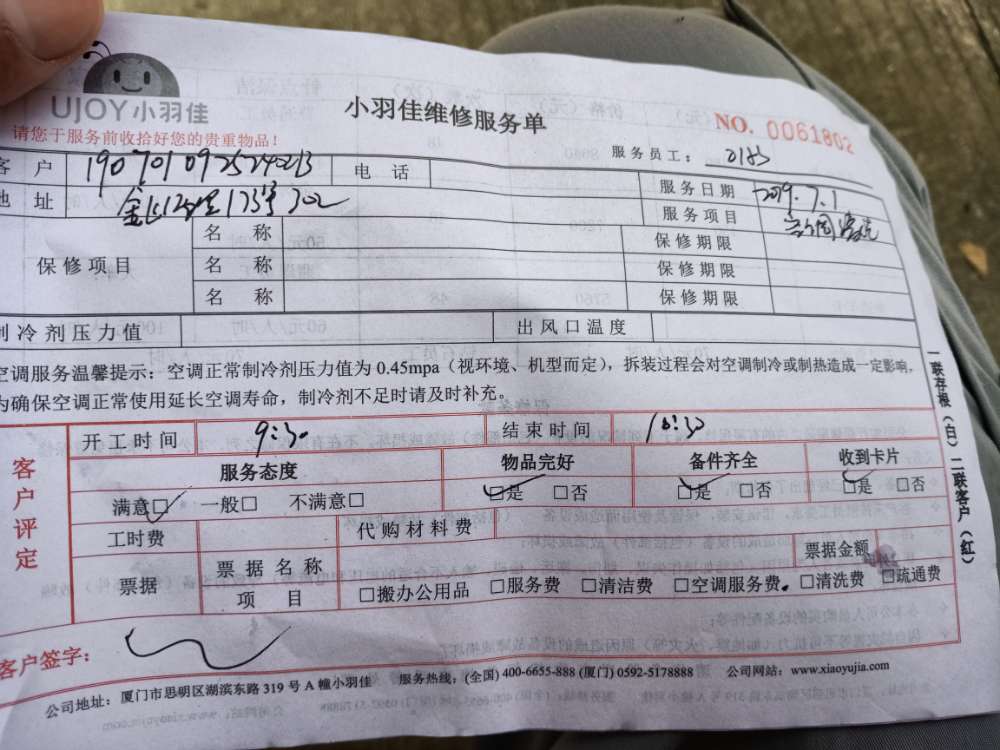 UJOY小羽佳
小羽佳维修服务单
NO. 0061802
请您于服务前收拾好您的贵重物品！
服务员工： 0185
客 户 电 话
服务日期 2019.7.1
地 址 173号302
服务项目
保修项目
名 称 保修期限
名 称 保修期限
名 称 保修期限
制冷剂压力值 出风口温度
空调服务温馨提示：空调正常制冷剂压力值为 0.45mpa（视环境、机型而定），拆装过程会对空调制冷或制热造成一定影响，
为确保空调正常使用延长空调寿命，制冷剂不足时请及时补充。
客户评定
开工时间 9:30 结束时间 10:30
服务态度 物品完好 备件齐全 收到卡片
满意□ 一般□ 不满意□ □是 □否 □是 □否 □是 □否
工时费 代购材料费
票据 票据名称 票据金额
项 目 □搬办公用品 □服务费 □清洁费 □空调服务费 □清洗费 □疏通费
客户签字：
公司地址：厦门市思明区湖滨东路 319 号 A 幢小羽佳 服务热线：(全国) 400-6655-888 (厦门) 0592-5178888 公司网站：www.xiaoyujia.com
一联存根（白）二联客户（红）